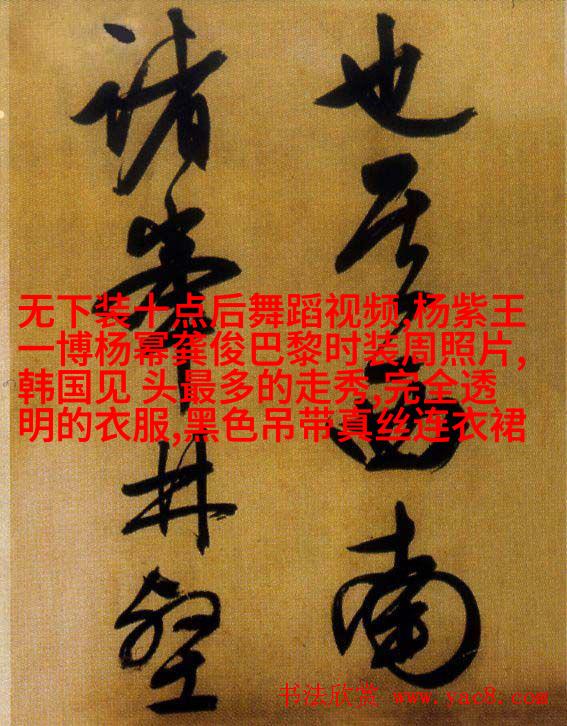 也其西南
諸峯林壑
无下装十点后舞蹈视频,杨紫王
一博杨幂龚俊巴黎时装周照片,
韩国见 头最多的走秀,完全透
明的衣服,黑色吊带真丝连衣裙
书法欣赏 www.yac8.com